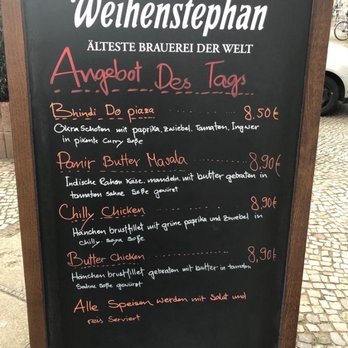 Weihenstephan
ÄLTESTE BRAUEREI DER WELT
Angebot Des Tags
Bhindi Do piaza 8.50€
Okra Schoten mit paprika, Zwiebel, Tomaten, Ingwer
in pikante Curry Soße
Panir Butter Masala 8,90€
Indische Rahm Käse, mandeln mit butter gebraten in
tomaten sahne Soße gewürst
Chilly Chicken 8,90€
Hänchen brustfillet mit grüne paprika und Zwiebel in
chilly soya Soße
Butter Chicken 8,90€
Hänchen brustfillet gebraten mit butter in tomaten
Sahne soße gewürst
Alle Speisen werden mit Salat und
reis Serviert